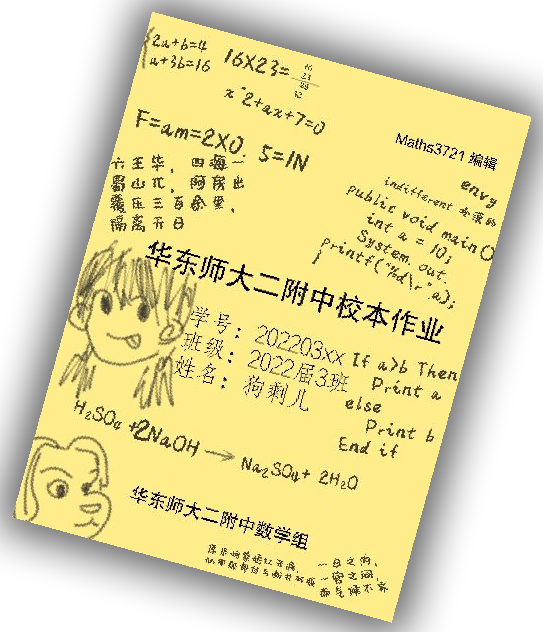 2a+b=4
a+3b=16
16X23=
16
23
48
32
x^2+ax+7=0
F=am=2X0.5=1N
Maths3721 编辑
六王毕，四海一
蜀山兀，阿房出
覆压三百余里，
隔离天日
envy
indifferent 冷漠的
public void main()
int a = 10;
System.out.
printf("%d\r",a);
}
华东师大二附中校本作业
学号：202203xx
班级：2022届3班
姓名：狗剩儿
If a>b Then
Print a
else
Print b
End if
H₂SO₄+2NaOH→Na₂SO₄+2H₂O
华东师大二附中数学组
一日之内，
一宫之间，
而气候不齐